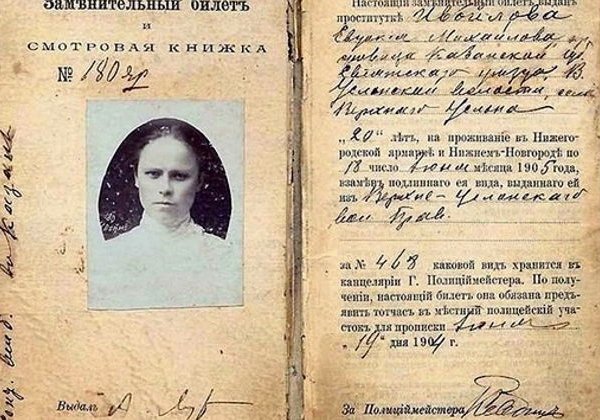 Замѣнительный билетъ
и
СМОТРОВАЯ КНИЖКА
№ 180 яр
Выдалъ
Настоящій замѣнительный билетъ выданъ
проституткѣ Ивойлова
Евдокія Михайлова, кр
Казанской губ
Свіяжскаго уѣзда, В.
Услонской волости, села
Верхняго Услона
„20“ лѣтъ, на проживаніе въ Нижего-
родской ярмаркѣ и Нижнемъ-Новгородѣ по
18 число Іюня мѣсяца 1905 года,
взамѣнъ подлиннаго ея вида, выданнаго ей
изъ Верхне-Услонскаго
вол Прав.
за № 468 каковой видъ хранится въ
канцеляріи Г. Полиціймейстера. По полу-
ченіи, настоящій билетъ она обязана предъ-
явить тотчасъ въ мѣстный полицейскій уча-
стокъ для прописки Іюня
„19“ дня 1904 г.
За Полиціймейстера